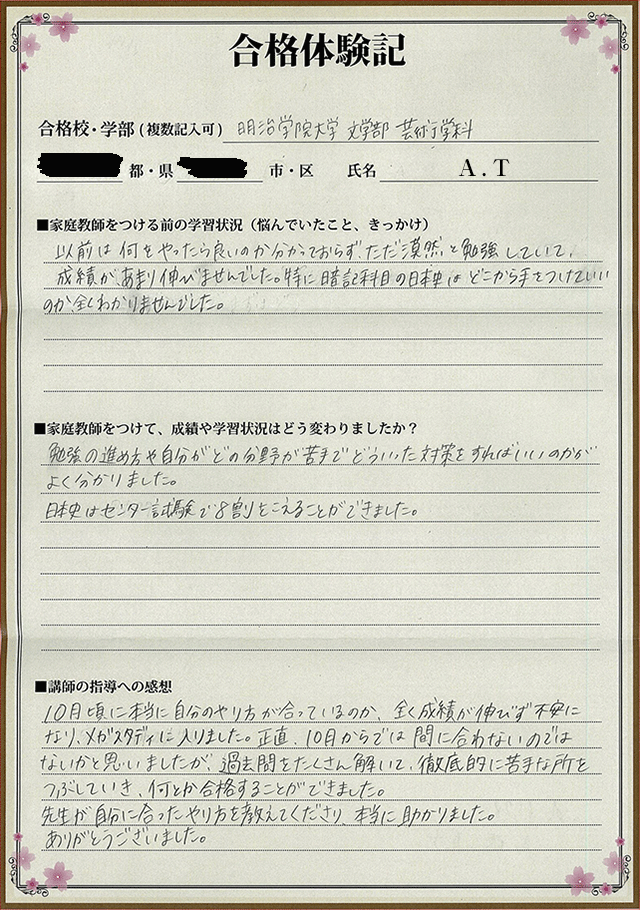 合格体験記
合格校・学部(複数記入可) 明治学院大学 文学部 芸術学科
都・県 市・区 氏名 A.T
■家庭教師をつける前の学習状況(悩んでいたこと、きっかけ)
以前は何をやったら良いのか分かっておらず、ただ漠然と勉強していて、
成績があまり伸びませんでした。特に暗記科目の日本史はどこから手をつけていい
のか全くわかりませんでした。
■家庭教師をつけて、成績や学習状況はどう変わりましたか?
勉強の進め方や自分がどの分野が苦手でどういった対策をすればいいのかが
よく分かりました。
日本史はセンター試験で8割をこえることができました。
■講師の指導への感想
10月頃に本当に自分のやり方が合っているのか、全く成績が伸びず不安に
なり、メガスタディに入りました。正直、10月からでは間に合わないのでは
ないかと思いましたが、過去問をたくさん解いて、徹底的に苦手な所を
つぶしていき、何とか合格することができました。
先生が自分に合ったやり方を教えてくださり、本当に助かりました。
ありがとうございました。